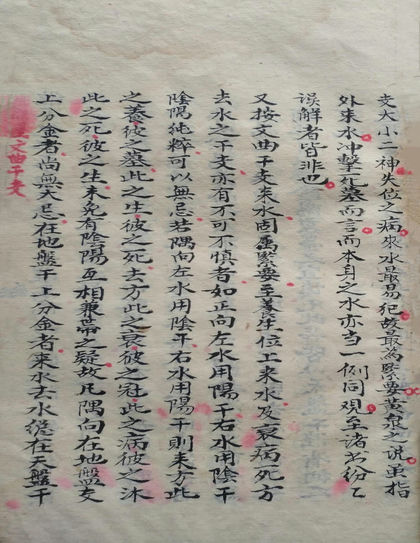 文大小二神失位之病來水最易犯故最為緊要黃泉之說虽指
外來水冲擊花墓而言而本身之水亦当一例同观至诸书纷乙
误解者皆非也
又按文曲干支來水固属緊要至養生位上來水及衰病死方
去水之干支亦有不可不慎者如正向左水用陽干右水用陰干
陰陽純粹可以無忌若隅向左水用陰干右水用陽干則來方此
之養彼之墓此之生彼之死去方此之衰彼之冠此之病彼之沐
此之死彼之生未免有陰陽互相兼帶之疑故凡隅向在地盤支
上分金者尚無大忌在地盤干上分金者來水去水縂在天盤干
文曲干支